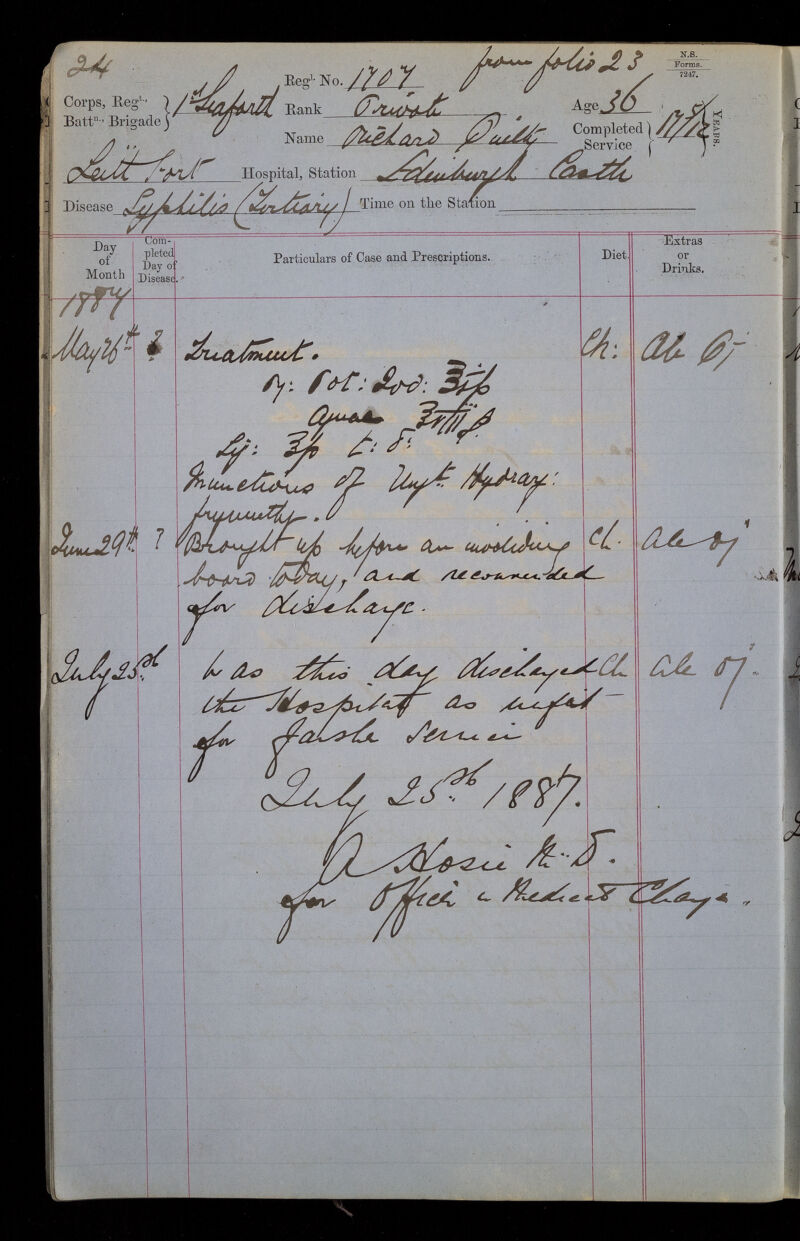 24
from folio 23
N.S.
Forms.
7247.
Regl. No. 1707
Corps, Regt. Battn. Brigade } 1st Seaforth
Rank Private
Age 36
Name Richard Quilty
Completed Service } 17 5/12 YEARS.
Leith Fort Hospital, Station Edinburgh Castle
Disease Syphilis (Tertiary) Time on the Station
Day of Month
Completed Day of Disease.
Particulars of Case and Prescriptions.
Diet.
Extras or Drinks.
1887
May 26th ? Treatment. Ch: Ale Oj
Pot: Iod:
Aquae
Inunctions of Ungt. Hydrarg:
frequently.
June 29th ? Brought up before an invaliding Ch. Ale Oj
board today, and recommended
for discharge.
July 25th Was this day discharged Ch Ale Oj.
the Hospital as unfit
for further service
July 25th 1887.
A Hosie M.D.
for Officer in Medical Charge.